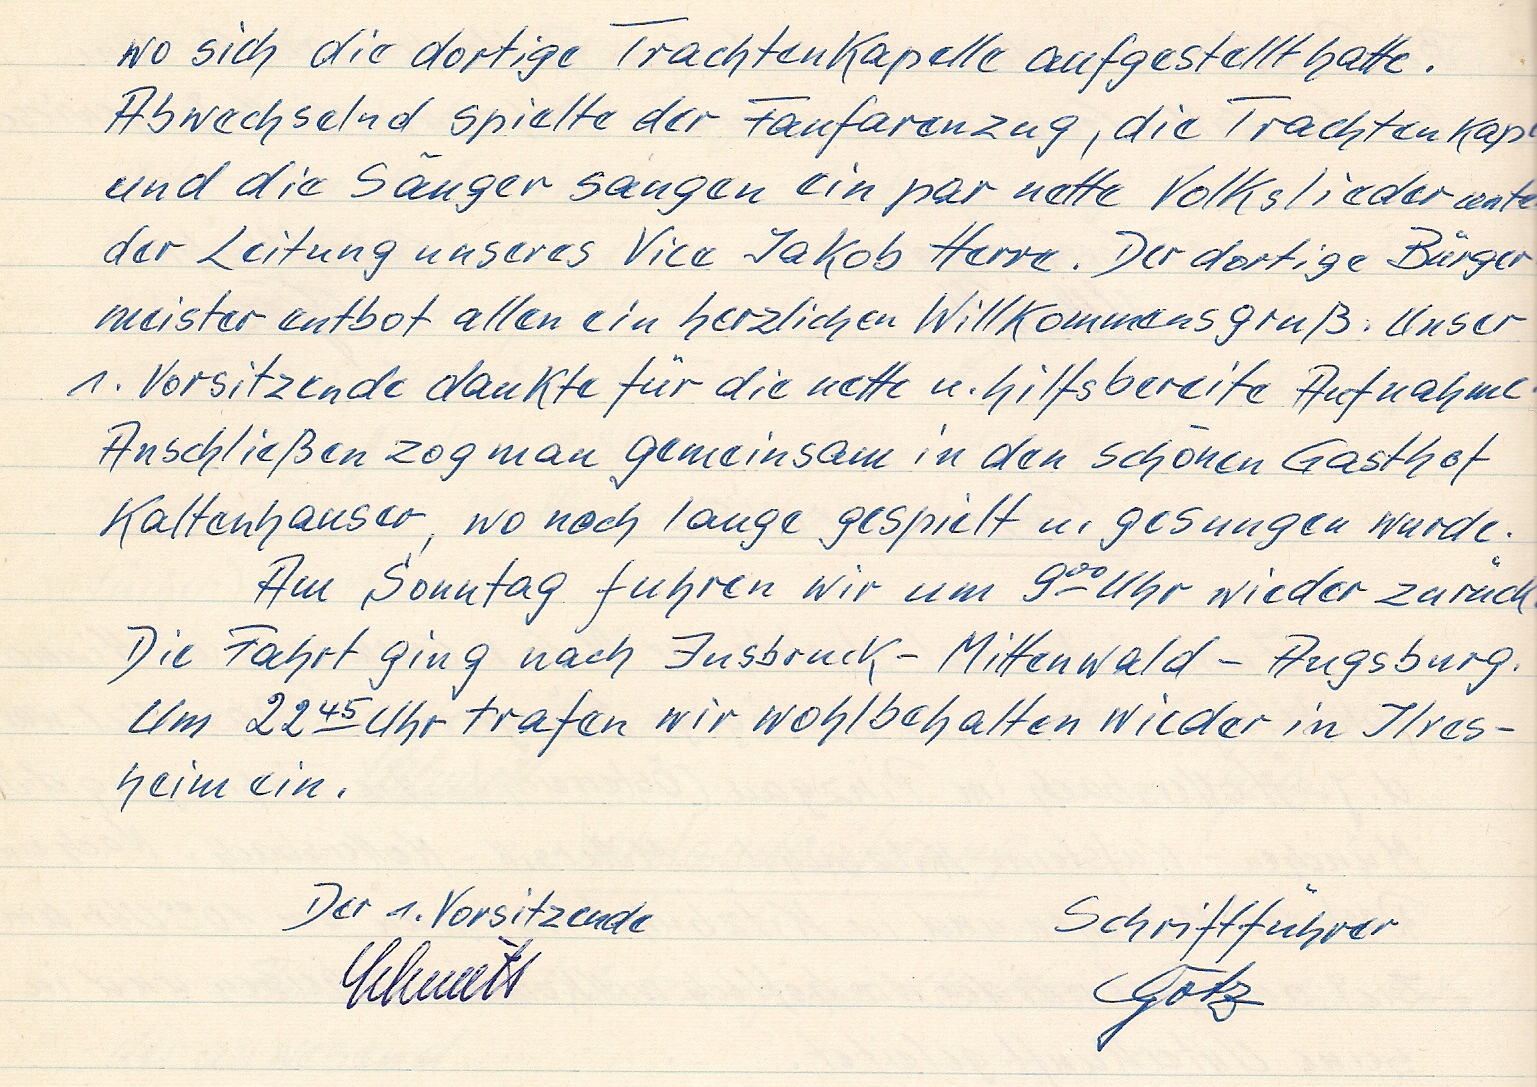 wo sich die dortige Trachtenkapelle aufgestellt hatte.
Abwechselnd spielte der Fanfarenzug, die Trachtenkap
und die Sänger sangen ein par nette Volkslieder unte
der Leitung unseres Vice Jakob Herre. Der dortige Bürger
meister entbot allen ein herzlichen Willkommensgruß. Unser
1. Vorsitzende dankte für die nette u. hilfsbereite Aufnahme.
Anschließen zog man gemeinsam in den schönen Gasthof
Kaltenhauser, wo noch lange gespielt u. gesungen wurde.
Am Sonntag fuhren wir um 9⁰⁰ Uhr wieder zurück.
Die Fahrt ging nach Insbruck - Mittenwald - Augsburg.
Um 22⁴⁵ Uhr trafen wir wohlbehalten wieder in Ilves-
heim ein.
Der 1. Vorsitzende Schriftführer
Götz